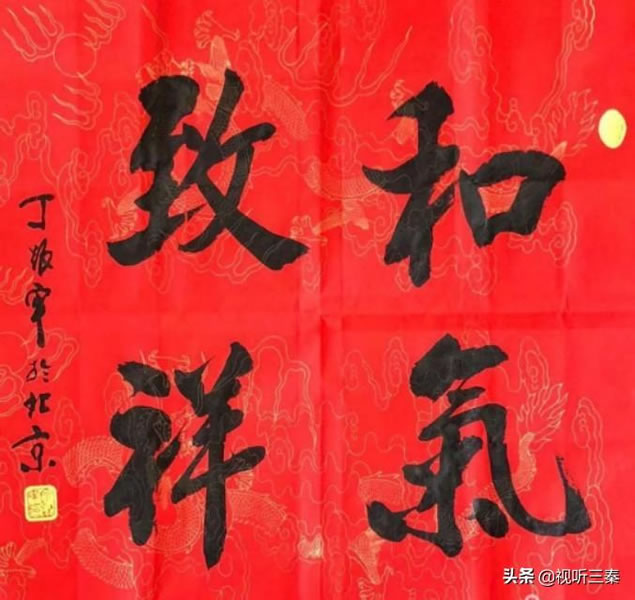 和氣
致祥
丁振军於北京
头条 @视听三秦